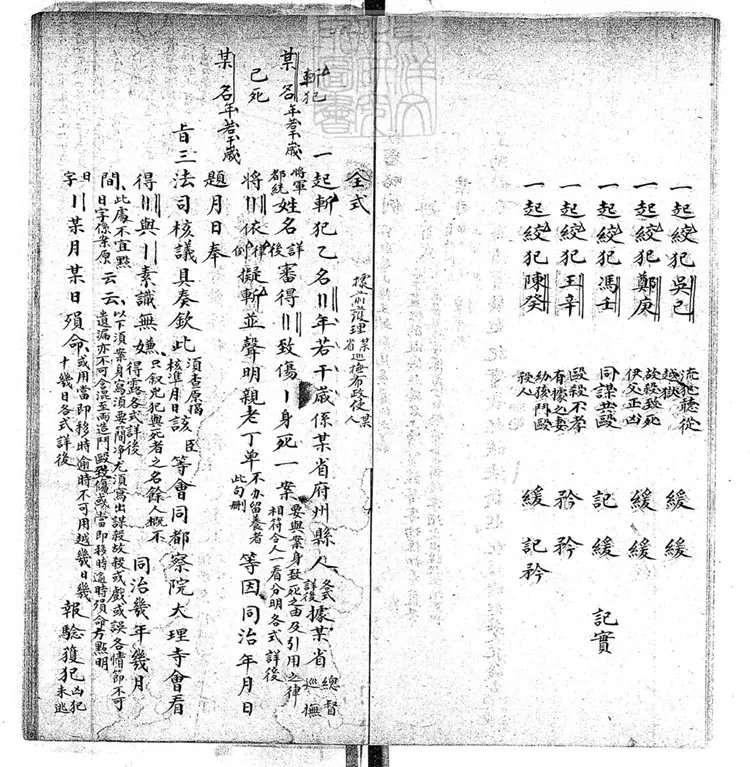 一起絞犯吳己 流犯聽從越獄 緩 緩
一起絞犯鄭庚 故殺致死伊父正凶 緩 緩
一起絞犯馮壬 同謀共毆 記 緩 記實
一起絞犯王辛 毆殺不孝有據之妻 矜 矜
一起絞犯陳癸 幼孩鬥毆殺人 緩 記矜
全式 據前護理某省巡撫布政使某人
斬犯
某名年若干歲 一起斬犯乙名〢年若干歲係某省府州縣人各式詳後據某省總督巡撫
已死 將軍都統姓名詳後審得〢致傷〡身死一案要與案身致死之由及引用之律相符合人一看分明各式詳後
某名年若干歲 將〢依律例擬斬並聲明親老丁单不办留養者此句刪等因同治年月日
題月日奉
旨三法司核議具奏欽此須查原揭核準月日該臣等會同都察院大理寺會看
得〢與〡素識無嫌只叙兇犯與死者之名餘人概不得露各式詳後同治幾年幾月
間此處不宜點日字係案原云云以下須案身寫須要簡凈尤須寫出謀殺故殺或戲或誤各情節不可遺漏亦不可含混至兩造鬥毆致傷或當即移時逾時殞命方點明
日字〡某月某日殞命或用當即移時逾時不可用越幾日幾十幾日各式詳後報驗獲犯凶犯未逃